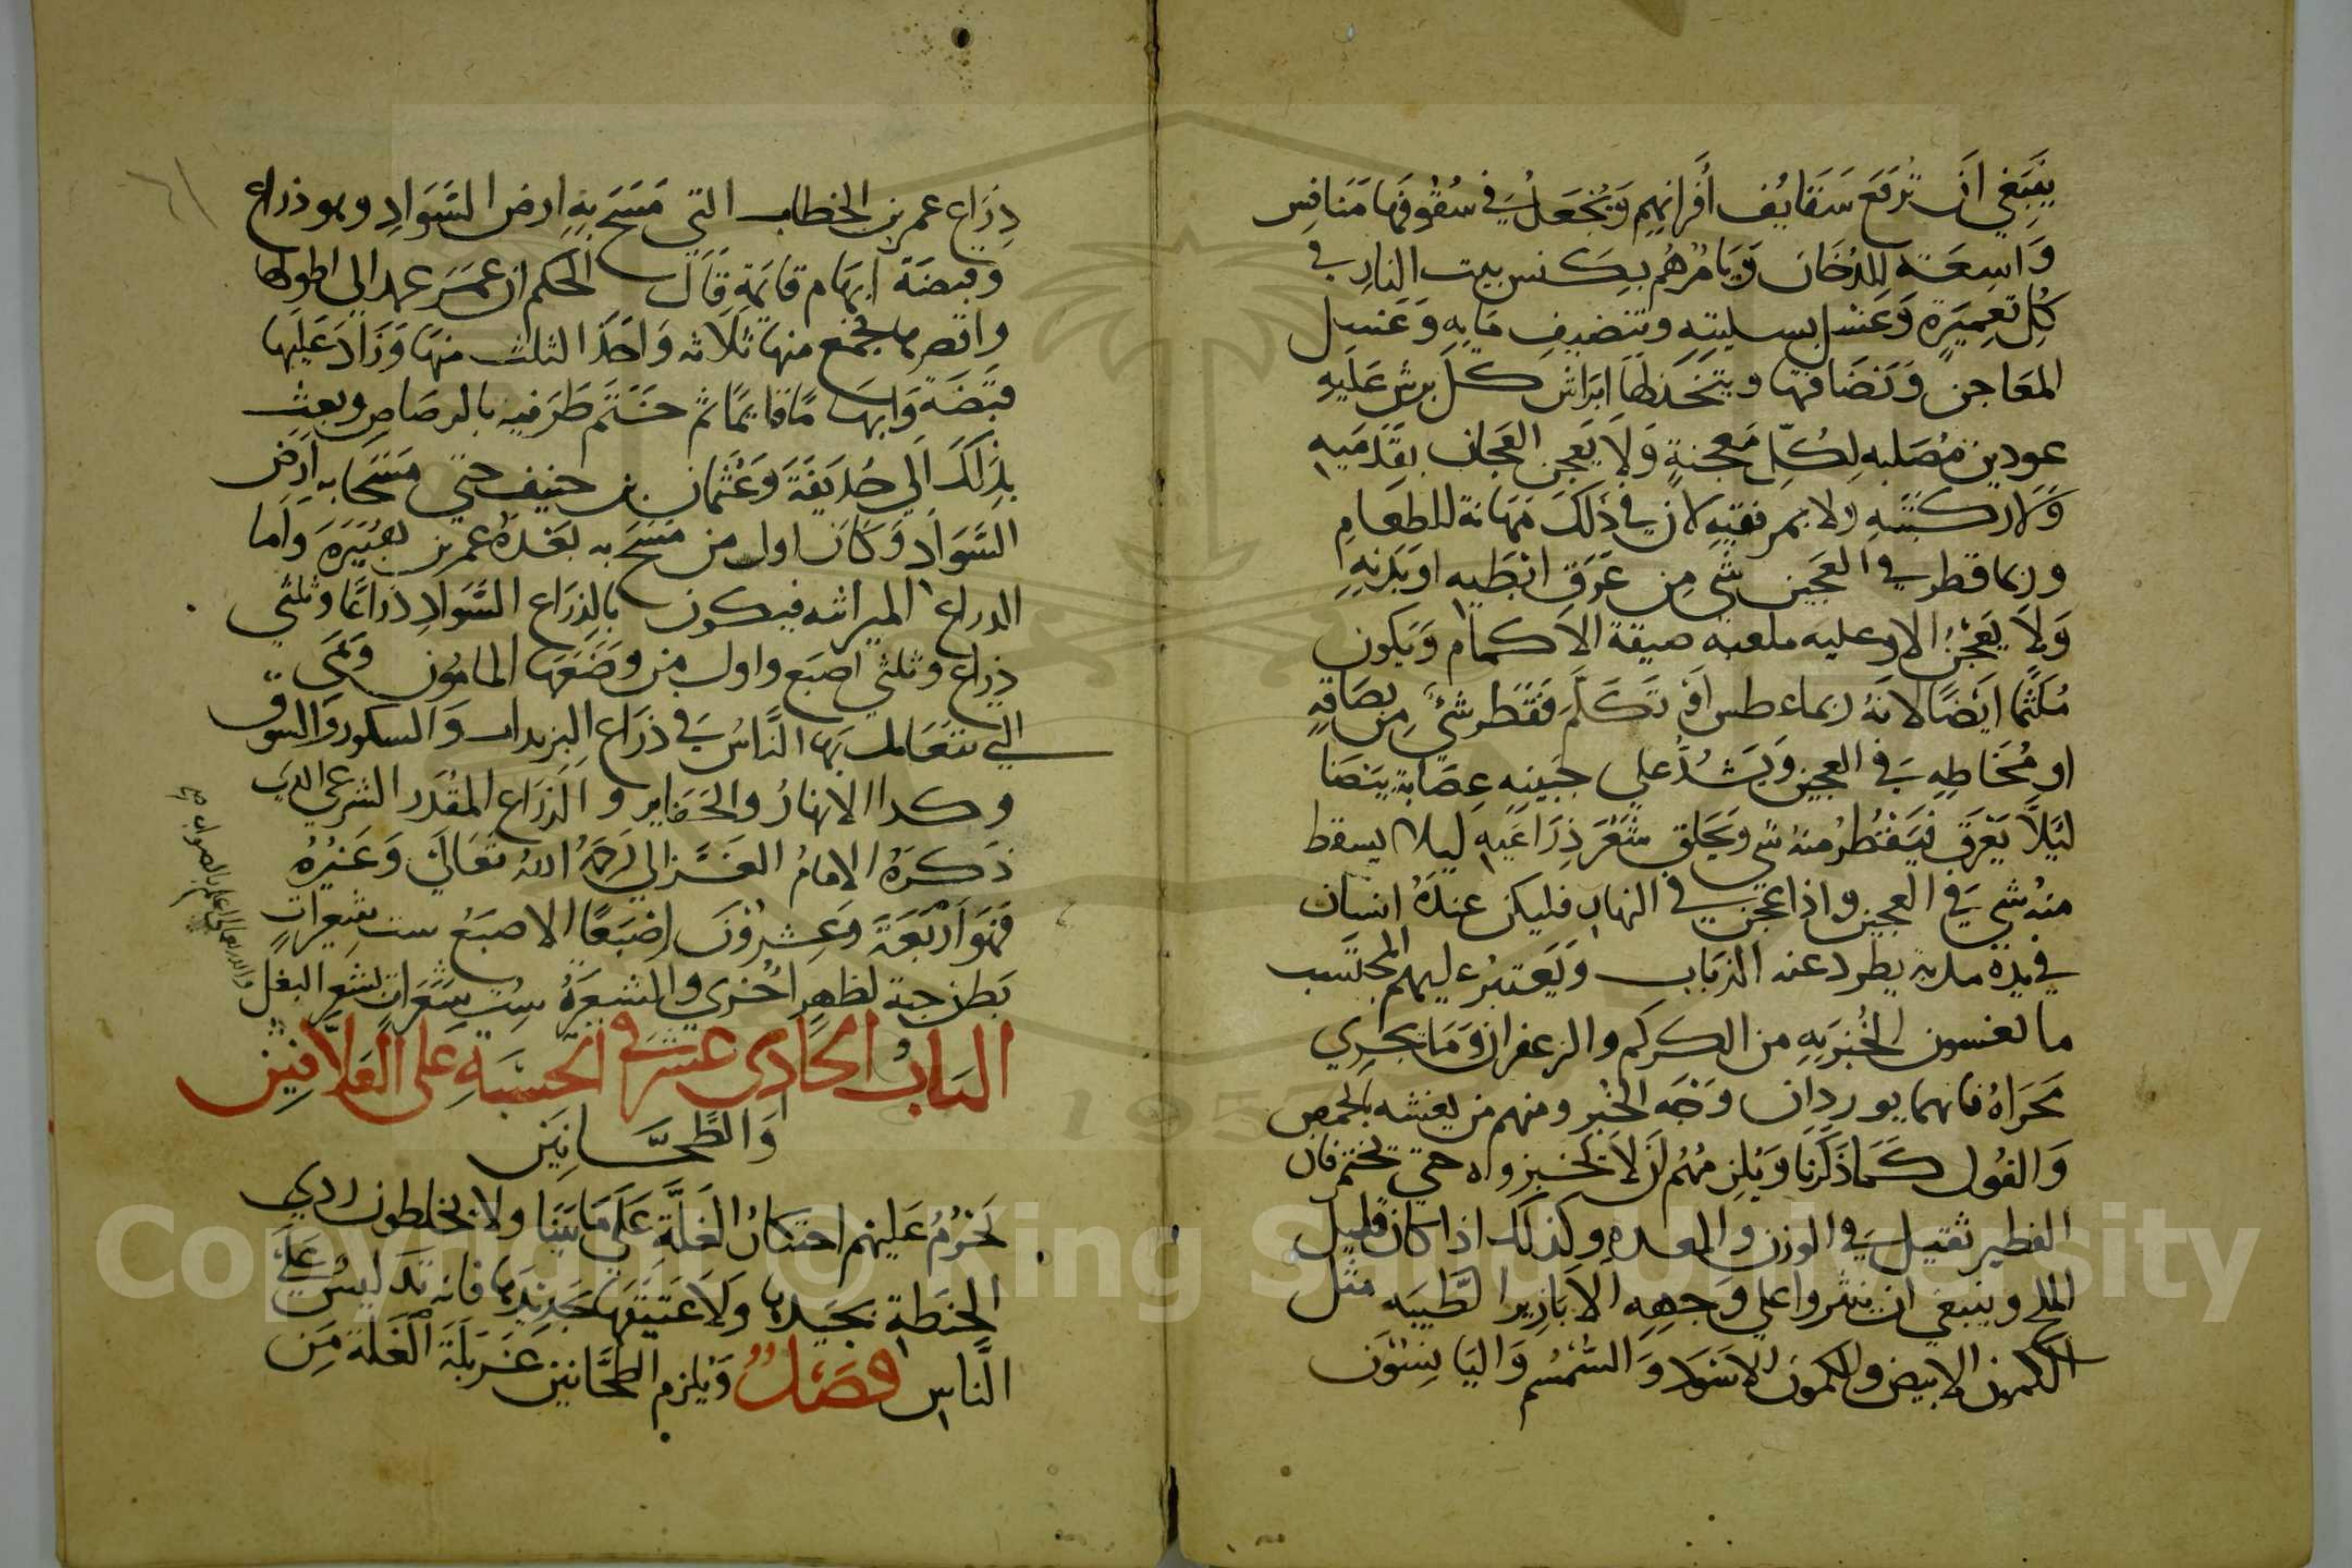 ينبغي ان ترفع سقايف أفرانهم ويجعل في سقوفها منافس
واسعة للدخان ويامرهم بكنس بيت النار في
كل تعميرة وغسل بسليته وتنضيف مايه وغسل
المعاجن ونضافتها ويتخذ لها ابراش كل برش عليه
عودين مصلبه لكل معجنة ولا يعجن العجان بقدميه
ولا ركبتيه ولا بمرفقيه لان في ذلك مهانة للطعام
وربما قطر في العجين شي من عرق ابطيه او بدنه
ولا يعجن الا وعليه ملعبه ضيقة الاكمام ويكون
ملثما ايضا لانه ربما عطس او تكلم فقطر شي من بصاقه
او مخاطه في العجين ويشد على جبينه عصابة بيضا
ليلا يعرق فيقطر منه شي ويحلق شعر ذراعيه ليلا يسقط
منه شي في العجين واذا عجن في النهار فليكن عنده انسان
في يده مدبة يطرد عنه الذباب ويعتبر عليهم المحتسب
ما يغشون الخبز به من الكركم والزعفران وما يجري
مجراه فانهما يوردان وجه الخبز ومنهم من يغشه بالحمص
والفول كما ذكرنا ويلزمهم ان لا يخبزواه حتى يختمر فان
الفطير ثقيل في الوزن والمعده وكذلك اذا كان قليل
الملح وينبغي ان ينثروا على وجهه الابازير الطيبه مثل
الكمون الابيض والكمون الاسود والسمسم واليانسون
ذراع عمر بن الخطاب التي مسح به ارض السواد وهو ذراع
وقبضة ابهام قايمة قال الحكم ان عمر عمد الى اطولها
واقصرها فجمع منها ثلاثه واخذ الثلث منها وزاد عليها
قبضة وابهاما قايما ثم ختم طرفيه بالرصاص وبعث
بذلك الى حذيفة وعثمان بن حنيف حتى مسحا به ارض
السواد وكان اول من مسح به بعده عمر بن هبيرة واما
الدراع الميراثيه فيكون بالذراع السواد ذراعا وثلثي
ذراع وثلثي اصبع واول من وضعها المامون وهي
التي يتعامل بها الناس في ذراع البريدات والسكور والسوق
وكدا الانهار والحفاير والذراع المقدر الشرعي الذي
ذكره الامام الغزالي رحمه الله تعالى وغيره
فهو اربعة وعشرون إصبعا الاصبع ست شعيرات
بطن حبة لظهر اخرى والشعيرة ست شعرات بشعر البغل
والله تعالى اعلم بالصواب
الباب الحادي عشر في الحسبة على العلافين
والطحانين
يحرم عليهم احتكار الغلة على ما بينا ولا يخلطون ردي
الحنطة بجيدها ولا عتيقها بجديدها فانه تدليس على
الناس فصل ويلزم الطحانين غربلة الغلة من